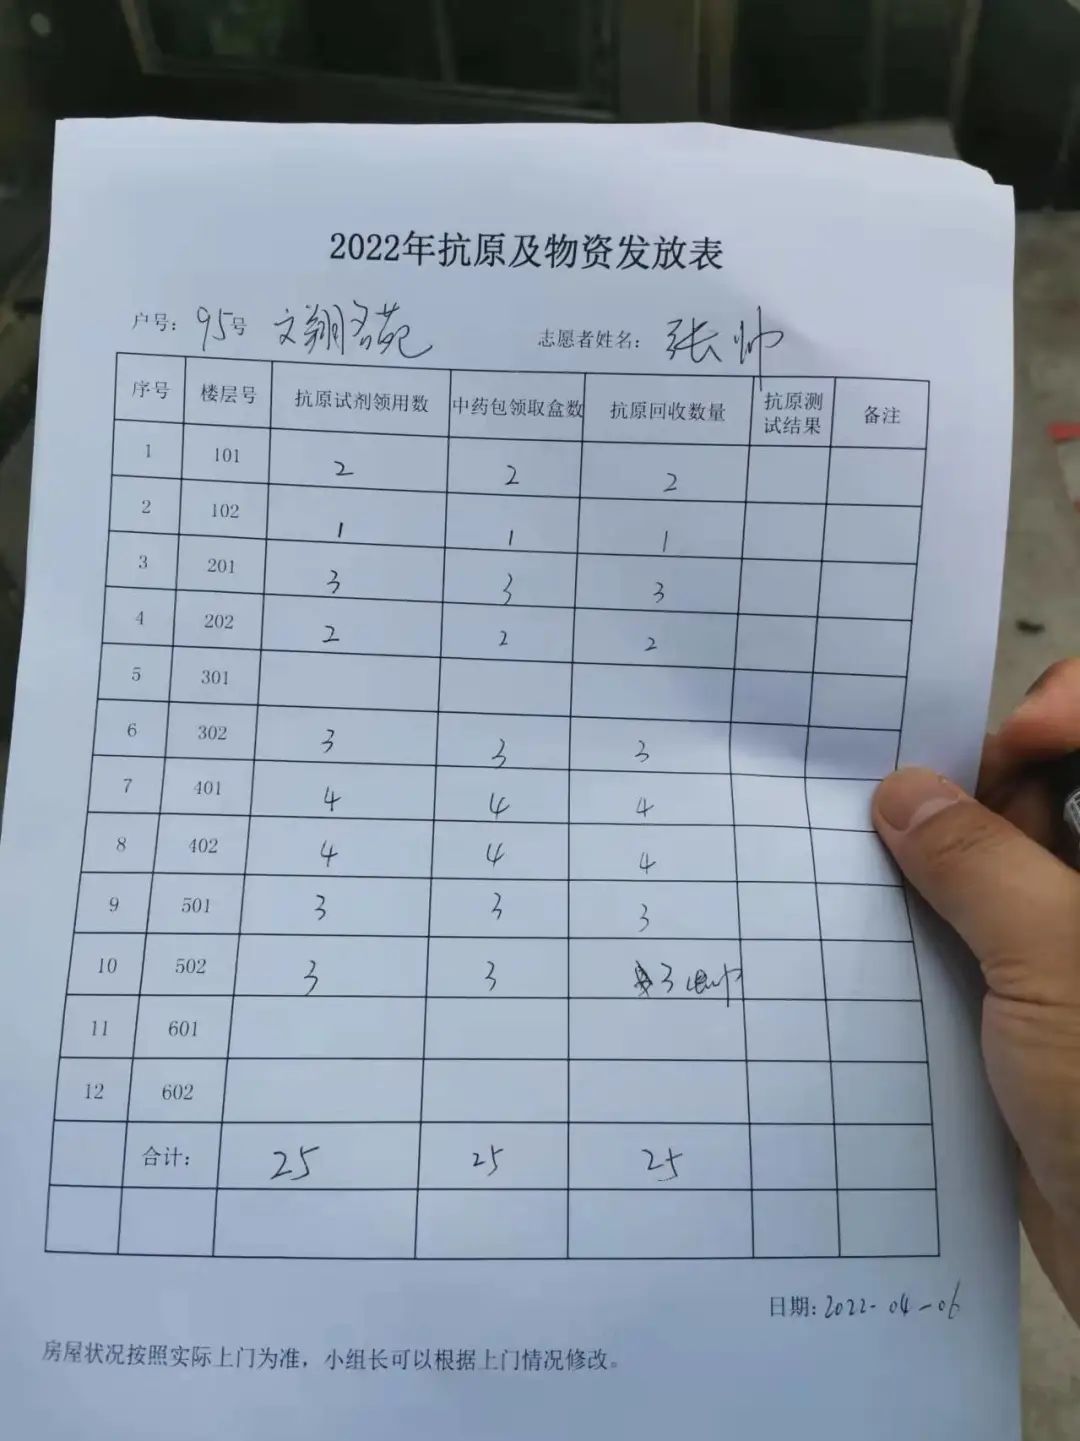 2022年抗原及物资发放表
户号：95号 文翔名苑 志愿者姓名：张帅
序号 楼层号 抗原试剂领用数 中药包领取盒数 抗原回收数量 抗原测试结果 备注
1 101 2 2 2
2 102 1 1 1
3 201 3 3 3
4 202 2 2 2
5 301
6 302 3 3 3
7 401 4 4 4
8 402 4 4 4
9 501 3 3 3
10 502 3 3 3
11 601
12 602
合计： 25 25 25
日期：2022-04-06
房屋状况按照实际上门为准，小组长可以根据上门情况修改。